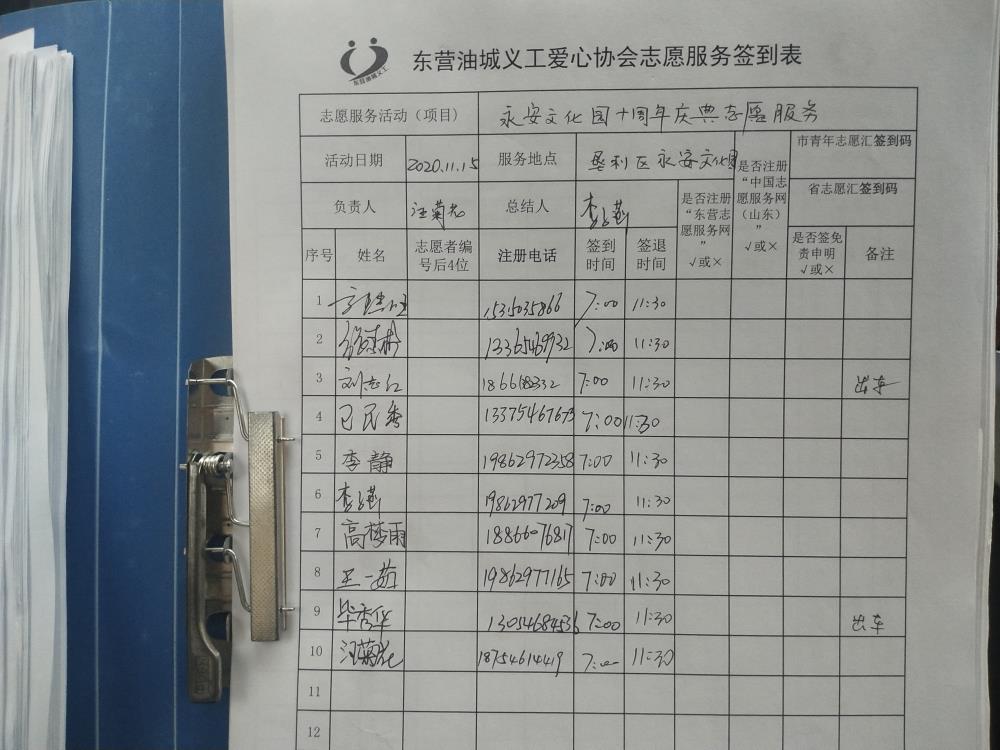 东营油城义工
东营油城义工爱心协会志愿服务签到表
志愿服务活动（项目） 永安文化园十周年庆典志愿服务
活动日期 2020.11.15 服务地点 垦利区永安文化园 是否注册“中国志愿服务网（山东）”√或× 市青年志愿汇签到码
负责人 汪菊花 总结人 是否注册“东营志愿服务网”√或× 省志愿汇签到码
序号 姓名 志愿者编号后4位 注册电话 签到时间 签退时间 是否签免责申明√或× 备注
1 7:00 11:30
2 13365469932 7:00 11:30
3 刘志红 186618332 7:00 11:30 出车
4 13375467673 7:00 11:30
5 李静 19862972358 7:00 11:30
6 19862977209 7:00 11:30
7 高梦雨 18866076817 7:00 11:30
8 王一茹 19862977165 7:00 11:30
9 毕秀华 13054684536 7:00 11:30 出车
10 汪菊花 18754614419 7:00 11:30
11
12